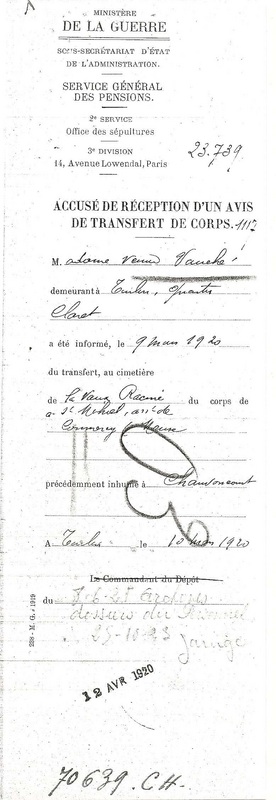 MINISTÈRE
DE LA GUERRE
SOUS-SECRÉTARIAT D'ÉTAT
DE L'ADMINISTRATION.
SERVICE GÉNÉRAL
DES PENSIONS.
2e SERVICE
Office des sépultures
3e DIVISION
14, Avenue Lowendal, Paris
23.739
ACCUSÉ DE RÉCEPTION D'UN AVIS
DE TRANSFERT DE CORPS. 1117
M. adame Veuve
demeurant à Toulon, quartier
Claret
a été informé, le 9 mars 1920
du transfert, au cimetière
de la Vaux Racine du corps de
à St Mihiel, arr. de
Commercy Meuse
précédemment inhumé à Chauvoncourt
A Toulon le 10 mars 1920
Le Commandant du Dépôt
du
298 - M. G. - 1919
12 AVR 1920
70639.CH.